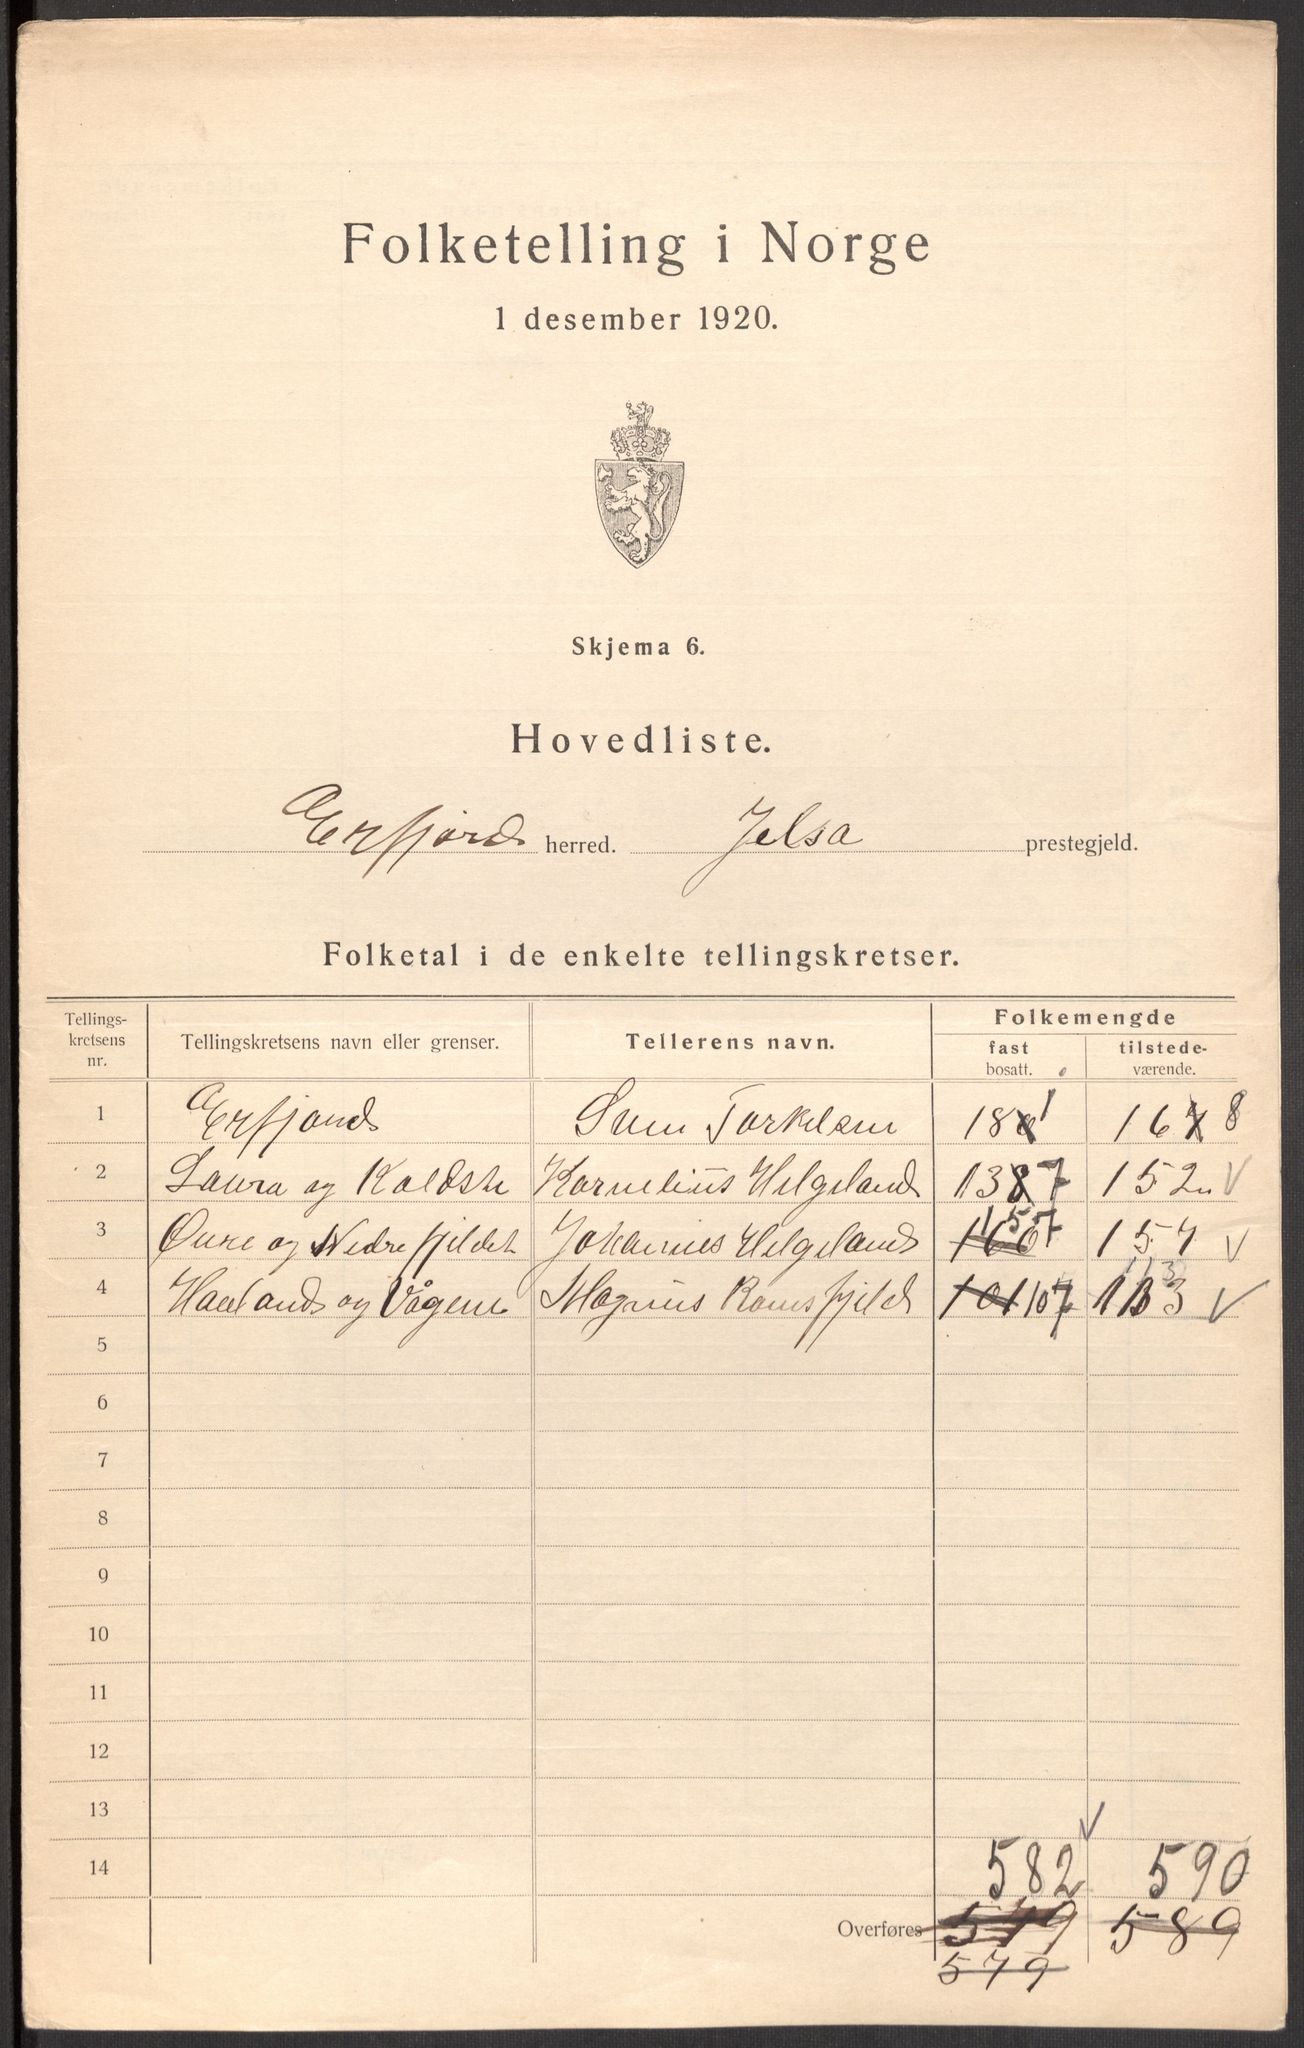 Folketelling i Norge
1 desember 1920.
Skjema 6.
Hovedliste.
Erfjord herred. Jelsa prestegjeld.
Folketal i de enkelte tellingskretser.
Tellings-kretsens nr. Tellingskretsens navn eller grenser. Tellerens navn. Folkemengde
fast bosatt. tilstede-værende.
1 Erfjord Sven Torkelsen 181 168
2 Laura og Koldste Kornelius Helgeland 137 152
3 Øvre og Nedre fjeldet Johannes Helgeland 157 157
4 Haaland og Vågene Magnus Ramsfjeld 101 107 113
5
6
7
8
9
10
11
12
13
14 582 590
Overføres 579 589
579